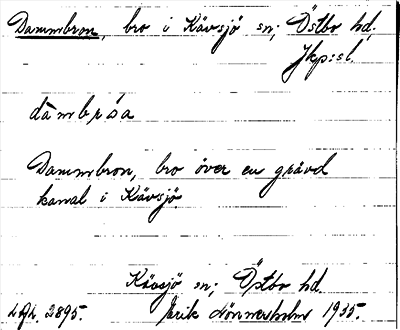 Dammbron, bro i Kävsjö sn; Östbo hd,
Jkp:sl.
dàmbrόa
Dammbron, bro över en grävd
kanal i Kävsjö.
Kävsjö sn; Östbo hd.
2895. Erik Nönnersholm 1935.